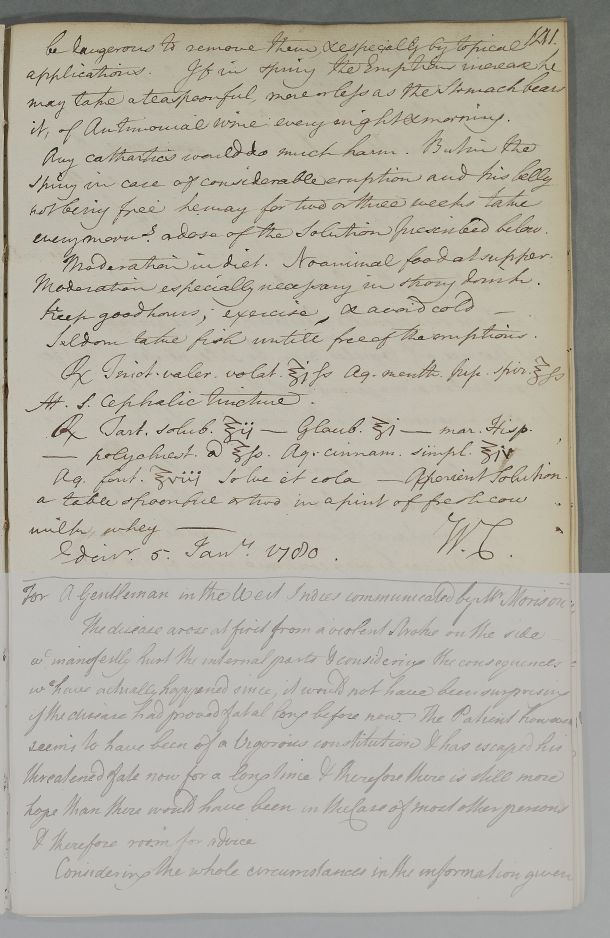 121.
be dangerous to remove them, & especially by topical
applications. If in spring the Eruption increase he
may take a teaspoonful, more or less as the Stomach bears
it, of Antimonial Wine every night & morning.
Any cathartics would do much harm. But in the
Spring in case of considerable eruption and his belly
not being free he may for two or three weeks take
every morns. a dose of the Solution prescribed below.
Moderation in diet. No animal food at supper.
Moderation especially necessary in strong drink.
Keep good hours; exercise, & avoid cold —
Seldom take fish untill free of the eruptions.
℞ Tinct. valer. volat. ℥jſs Aq. menth. pip. spir. ℥ſs
M. S. Cephalic tincture.
℞ Tart. solub. ℥ij — Glaub. ℥j — mar. Hisp.
— polychrest. a ℥ſs. Aq. cinnam. simpl. ℥iv
Aq. font. ℥viij Solve et cola — Aperient Solution.
a table spoonful or two in a pint of fresh cow
milk whey —
Edinr. 5. Jany. 1780. W. C.
For A Gentleman in the West Indies communicated by Mr. Morison
The disease arose at first from a violent Stroke on the side
wh manifestly hurt the internal parts & considering the consequences
wh have actually happened since, it would not have been surprising
if the disease had proved fatal long before now. The Patient however
seems to have been of a Vigorous constitution & has escaped his
threatened fate now for a long time & therefore there is still more
hope than there would have been in the Case of most other persons
& therefore room for advice
Considering the whole circumstances in the information given